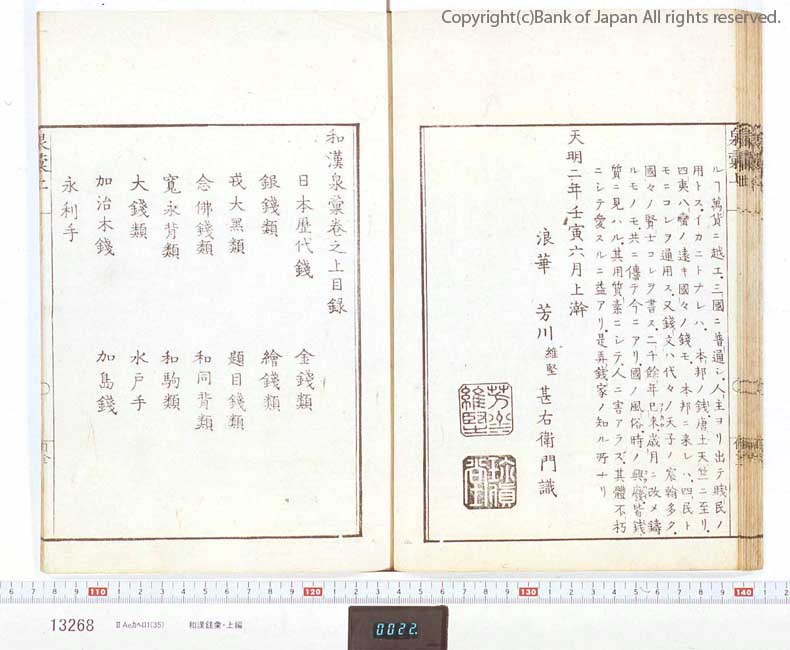 Copyright(c)Bank of Japan All rights reserved.
泉彙上
ルヿ萬貨ニ越エ三國ニ普通シ人主ヨリ出テ賎民ノ
用トス、イカニトナレハ、本邦ノ錢、唐土天竺ニ至リ、
四夷八蠻ノ遠キ國々ノ錢モ、本邦ニ来レハ、四民ト
モニコレヲ通用ス、又錢文ハ代々ノ天子ノ宸翰多ク、
國々ノ賢士コレヲ書ス、二千餘年已来歳月ニ改メ鑄
ルモノモ、共ニ傳テ今ニアリ、國ノ風俗、時ノ興廢皆錢
質ニ見ハル、其用質素ニシテ、人ニ害アラズ、其體不朽
ニシテ愛スルニ益アリ、是弄錢家ノ知ル所ナリ
天明二年壬寅六月上澣
浪華 芳川維堅 甚右衛門識
芳川維堅
和漢泉彙卷之上目録
日本歴代錢 金錢類
銀錢類 繪錢類
戎大黒類 題目錢類
念佛錢類 和同背類
寛永背類 和駒類
大錢類 水戸手
加治木錢 加島錢
永利手
泉彙上
6 7 8 9 110 1 2 3 4 5 6 7 8 9 120 1 2 3 4 5 6 7 8 9 130 1 2 3 4 5 6 7 8 9 140 1 2
13268 ⅡAeカペロ1(35) 和漢銭彙・上編
0022.